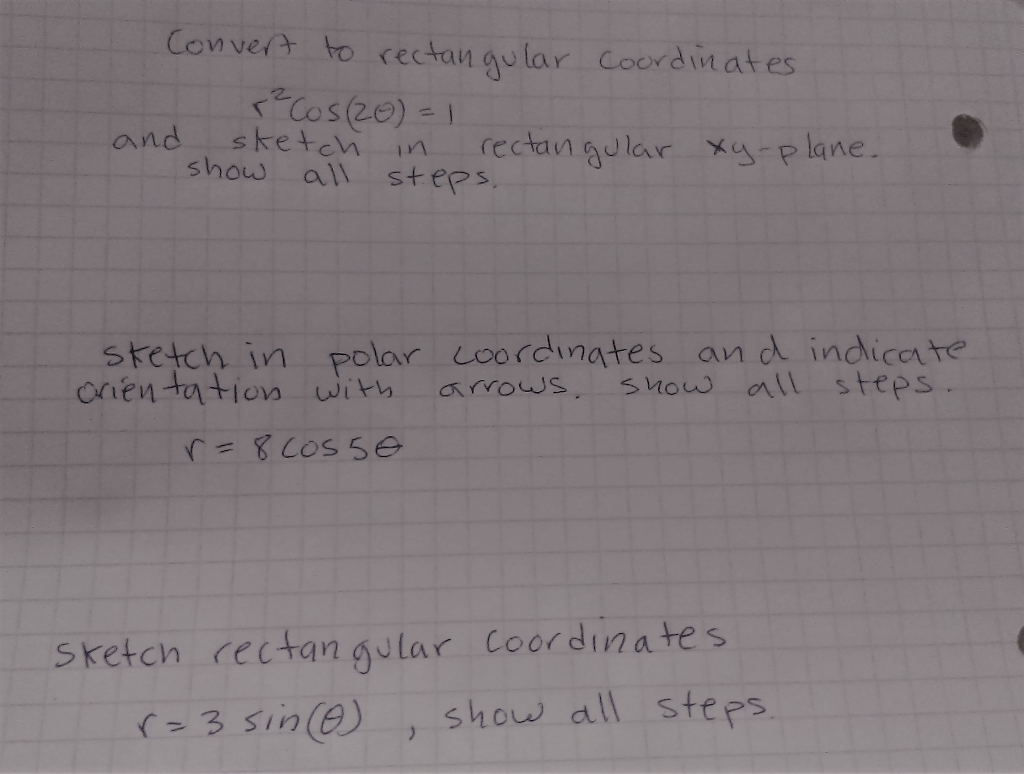 Convert to rectangular coordinates
r²cos(2θ) = 1
and sketch in rectangular xy-plane.
show all steps.
sketch in polar coordinates and indicate
orientation with arrows. show all steps.
r = 8 cos 5θ
sketch rectangular coordinates
r = 3 sin(θ) , show all steps.